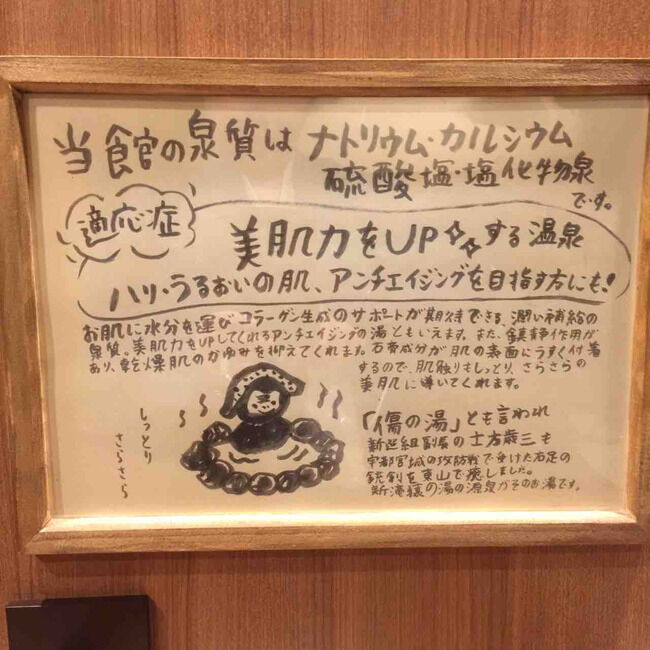 当館の泉質は ナトリウム・カルシウム
硫酸塩・塩化物泉
です。
適応症
美肌力をUPする温泉
ハリ・うるおいの肌、アンチエイジングを目指す方にも!
お肌に水分を運びコラーゲン生成のサポートが期待できる、潤い補給の
泉質。美肌力をUPしてくれるアンチエイジングの湯ともいえます。また、鎮静作用が
あり、乾燥肌のかゆみを抑えてくれます。石膏成分が肌の表面にうすく付着
するので、肌触りもしっとり、さらさらの
美肌に導いてくれます。
しっとり
さらさら
「傷の湯」とも言われ
新選組副長の土方歳三も
宇都宮城の攻防戦で受けた右足の
銃創を東山で癒しました。
新滝猿の湯の源泉がそのお湯です。